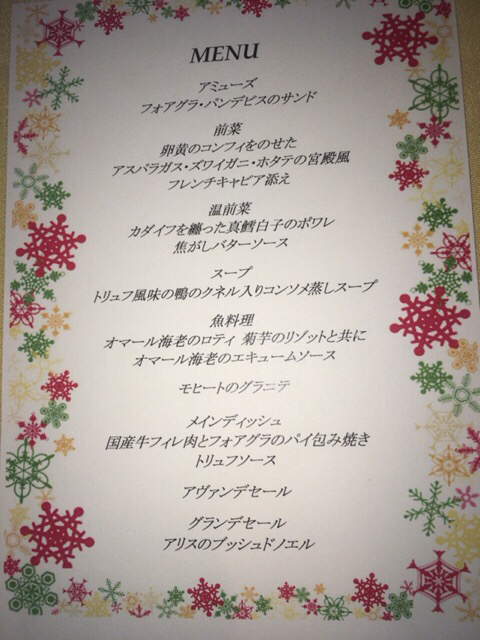 MENU
アミューズ
フォアグラ・パンデピスのサンド
前菜
卵黄のコンフィをのせた
アスパラガス・ズワイガニ・ホタテの宮殿風
フレンチキャビア添え
温前菜
カダイフを纏った真鱈白子のポワレ
焦がしバターソース
スープ
トリュフ風味の鴨のクネル入りコンソメ蒸しスープ
魚料理
オマール海老のロティ 菊芋のリゾットと共に
オマール海老のエキュームソース
モヒートのグラニテ
メインディッシュ
国産牛フィレ肉とフォアグラのパイ包み焼き
トリュフソース
アヴァンデセール
グランデセール
アリスのブッシュドノエル